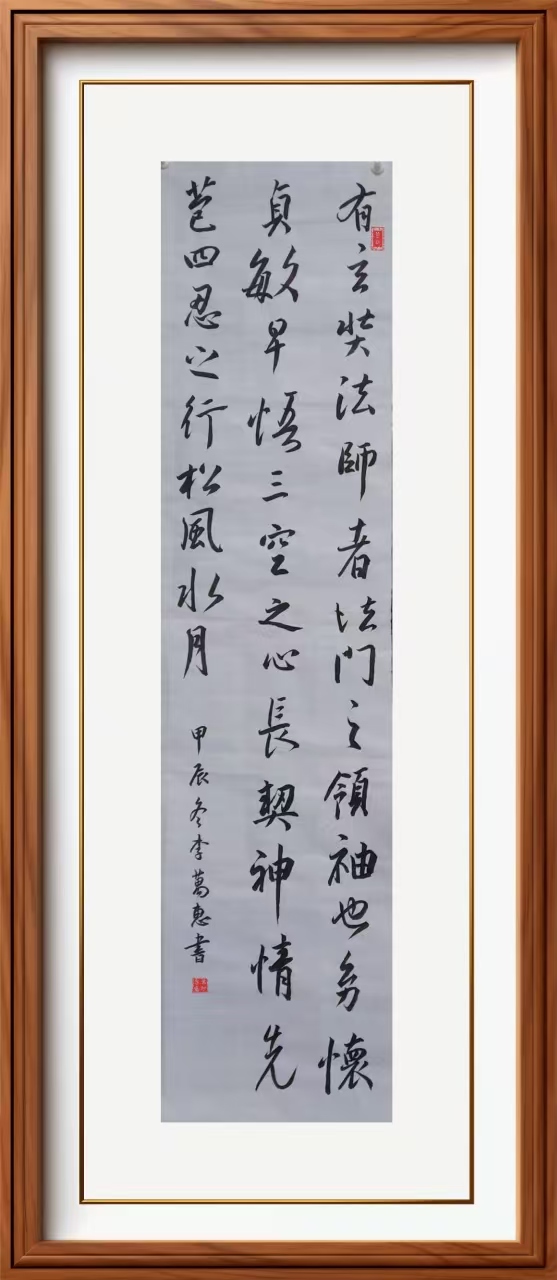 有玄奘法師者法門之領袖也幼懷
貞敏早悟三空之心長契神情先
苞四忍之行松風水月
甲辰冬李萬惠書